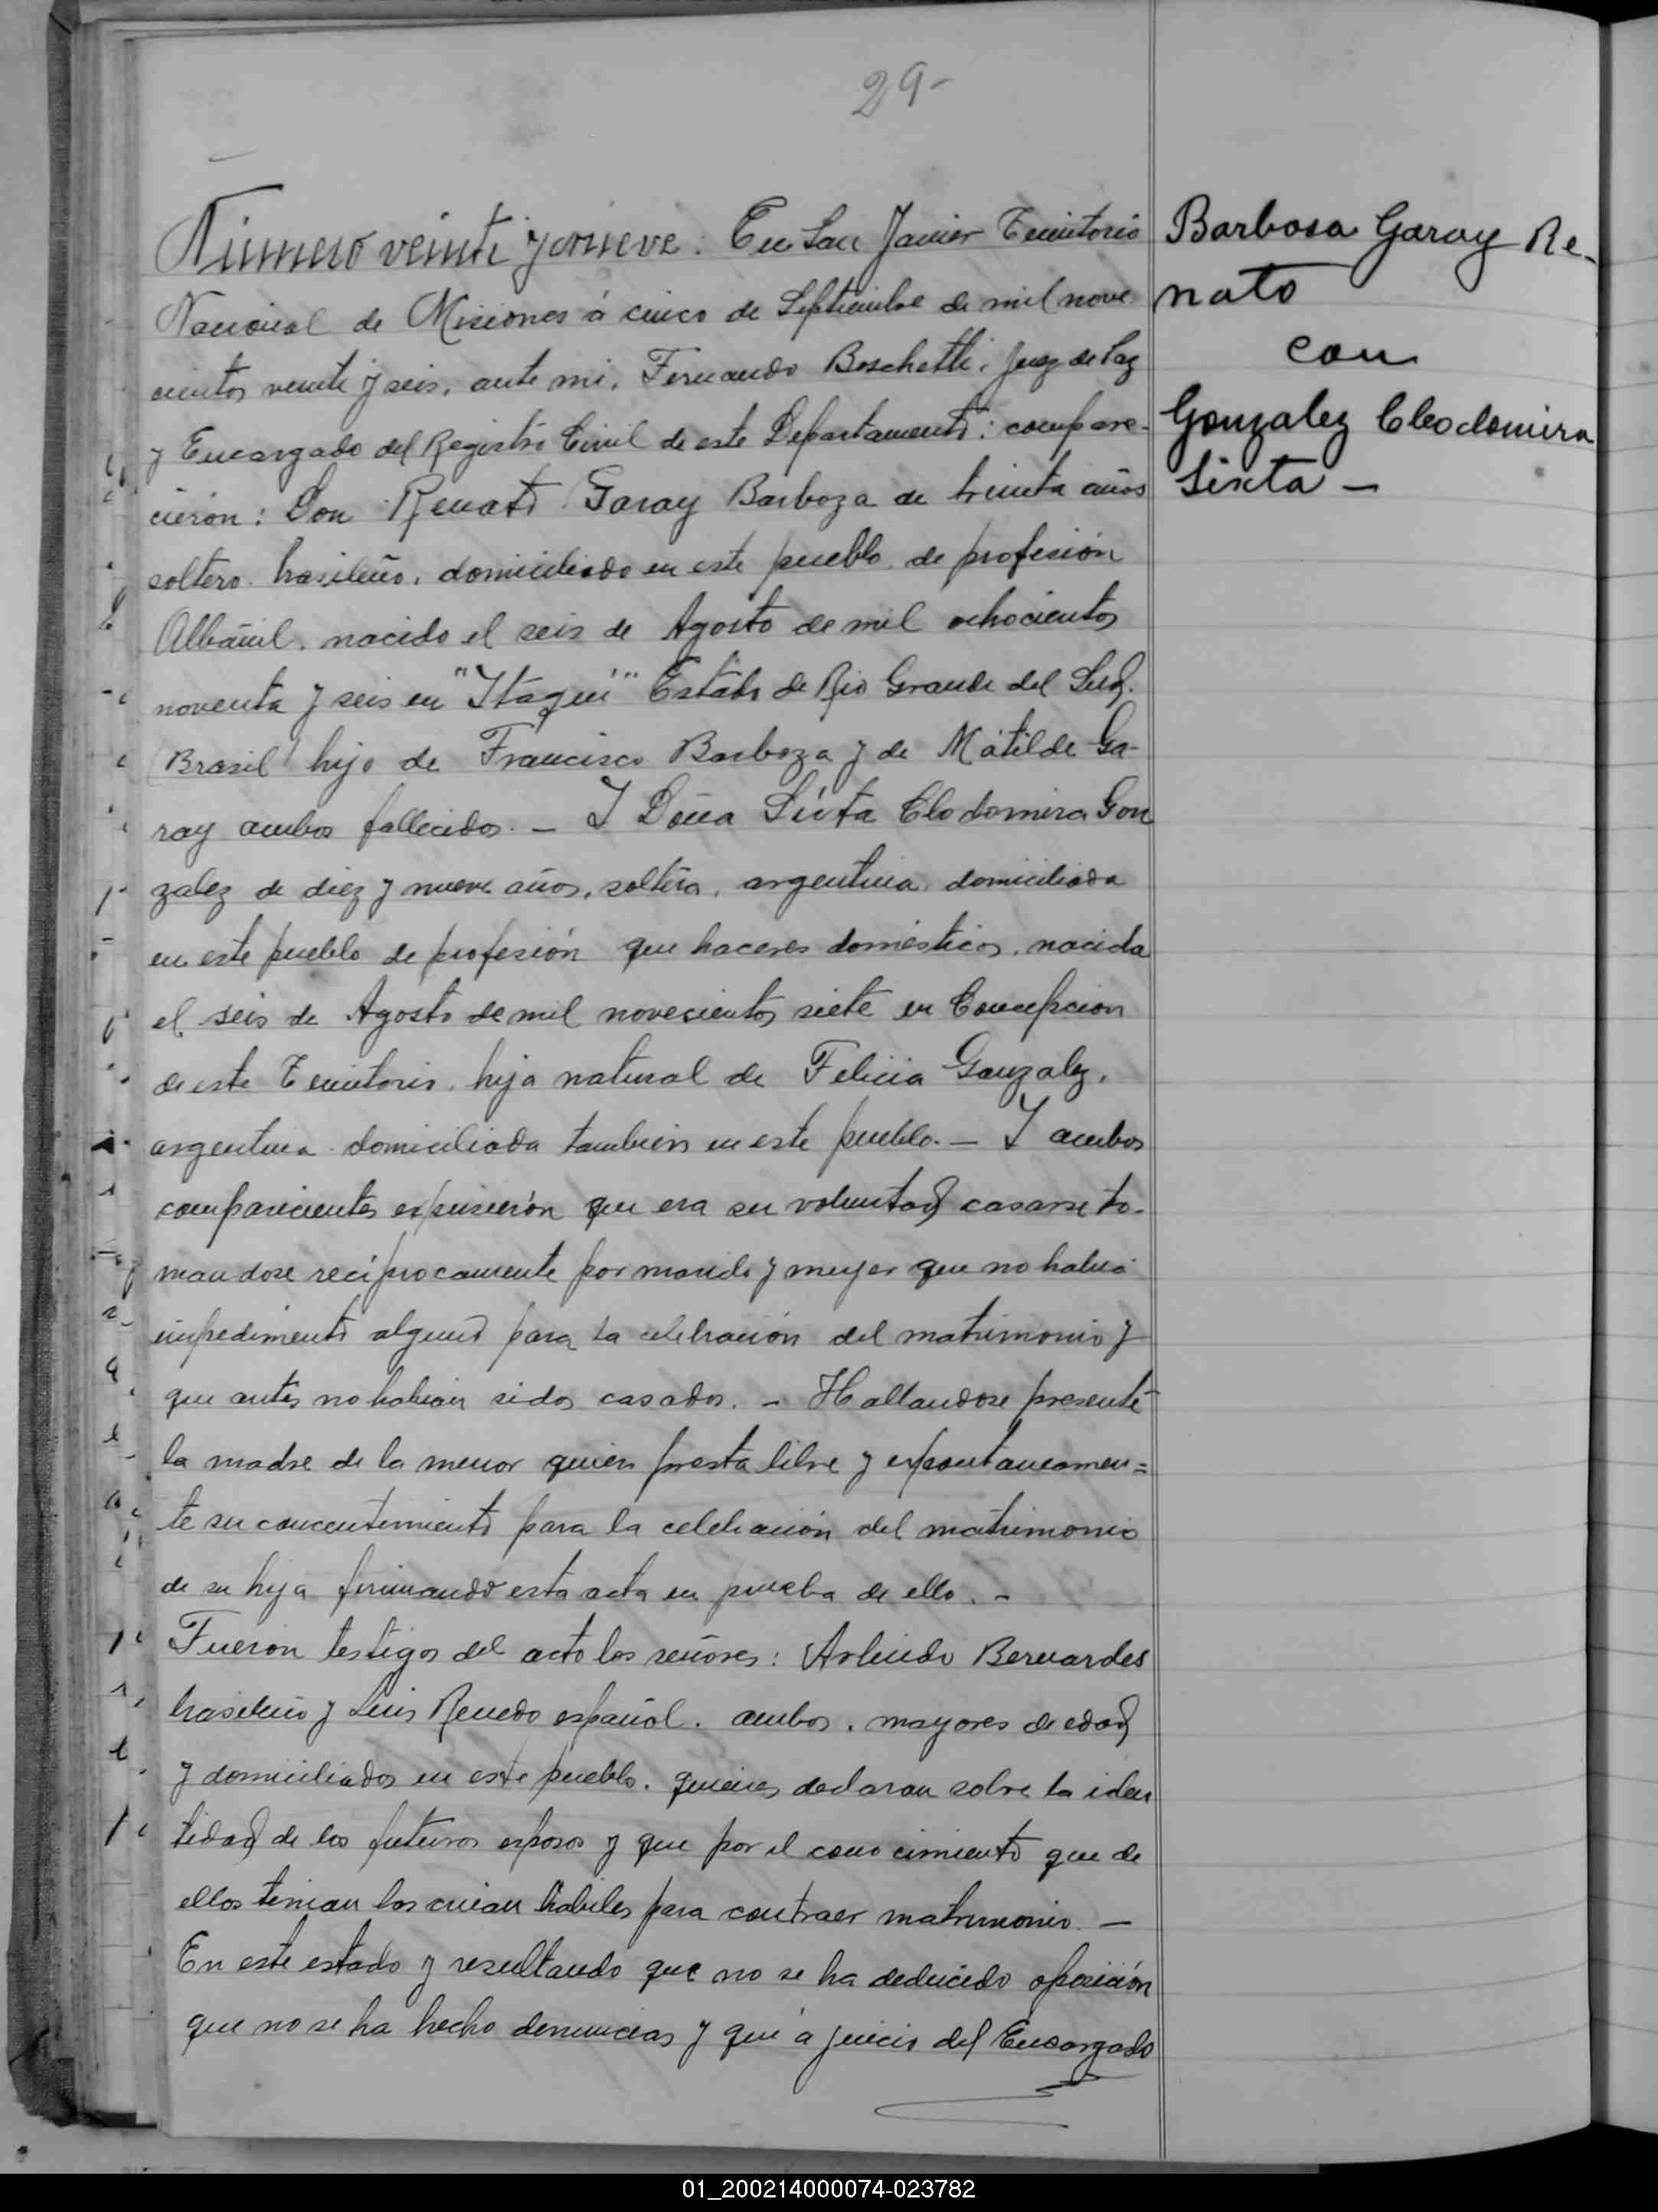 29-
Número veinte y nueve. En San Javier Territorio
Nacional de Misiones á cinco de Septiembre de mil nove
cientos veinte y seis, ante mi, Fernando Boschetti, Juez de Paz
y Encargado del Registro Civil de este Departamento: compare-
cieron: Don Renato Garay Barboza de treinta años
soltero brasileño, domiciliado en este pueblo de profesión
Albañil, nacido el seis de Agosto de mil ochocientos
noventa y seis en "Itaquí" Estado de Rio Grande del Sud,
(Brasil) hijo de Francisco Barboza y de Matilde Ga-
ray ambos fallecidos. - Y Doña Sixta Clodomira Gon
zalez de diez y nueve años, soltera, argentina domiciliada
en este pueblo de profesión que haceres domésticos, nacida
el seis de Agosto de mil novecientos siete en Concepcion
de este Territorio, hija natural de Felicia Gonzalez,
argentina domiciliada tambien en este pueblo. - Y ambos
comparecientes expusierón que era su voluntad casarse to-
mandose recíprocamente por marido y mujer que no habia
impedimento alguno para la celebración del matrimonio y
que antes no habian sidos casados. - Hallandose presente
la madre de la menor quien presta libre y espontaneamen=
te su concentimiento para la celebración del matrimonio
de su hija firmando esta acta en prueba de ello. -
Fueron testigos del acto los señores: Arlindo Bernardes
brasileño y Luis Renedo español. ambos, mayores de edad
y domiciliados en este pueblo. quienes declaran sobre la iden
tidad de los futuros esposos y que por el conocimiento que de
ellos tenian los creian hábiles para contraer matrimonio. -
En este estado y resultando que no se ha deducido oposición
que no se ha hecho denuncias y que á juicio del Encargado
Barbosa Garay Re-
nato
con
Gonzalez Cleodomira
Sixta -
01_200214000074-023782